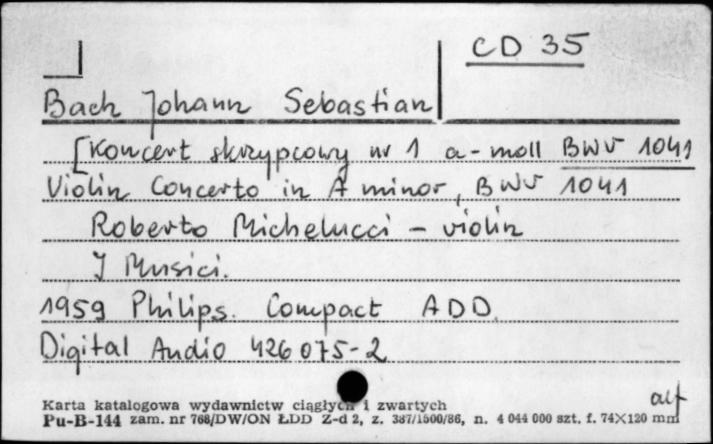 CD 35
Bach Johann Sebastian
[Koncert skrzypcowy nr 1 a-moll BWV 1041
Violin Concerto in A minor, BWV 1041
Roberto Michelucci - violin
I Musici.
1959 Philips. Compact ADD
Digital Audio 426 075-2
Karta katalogowa wydawnictw ciągłych i zwartych
Pu-B-144 zam. nr 768/DW/ON ŁDD Z-d 2, z. 387/1500/86, n. 4 044 000 szt. f. 74×120 mm